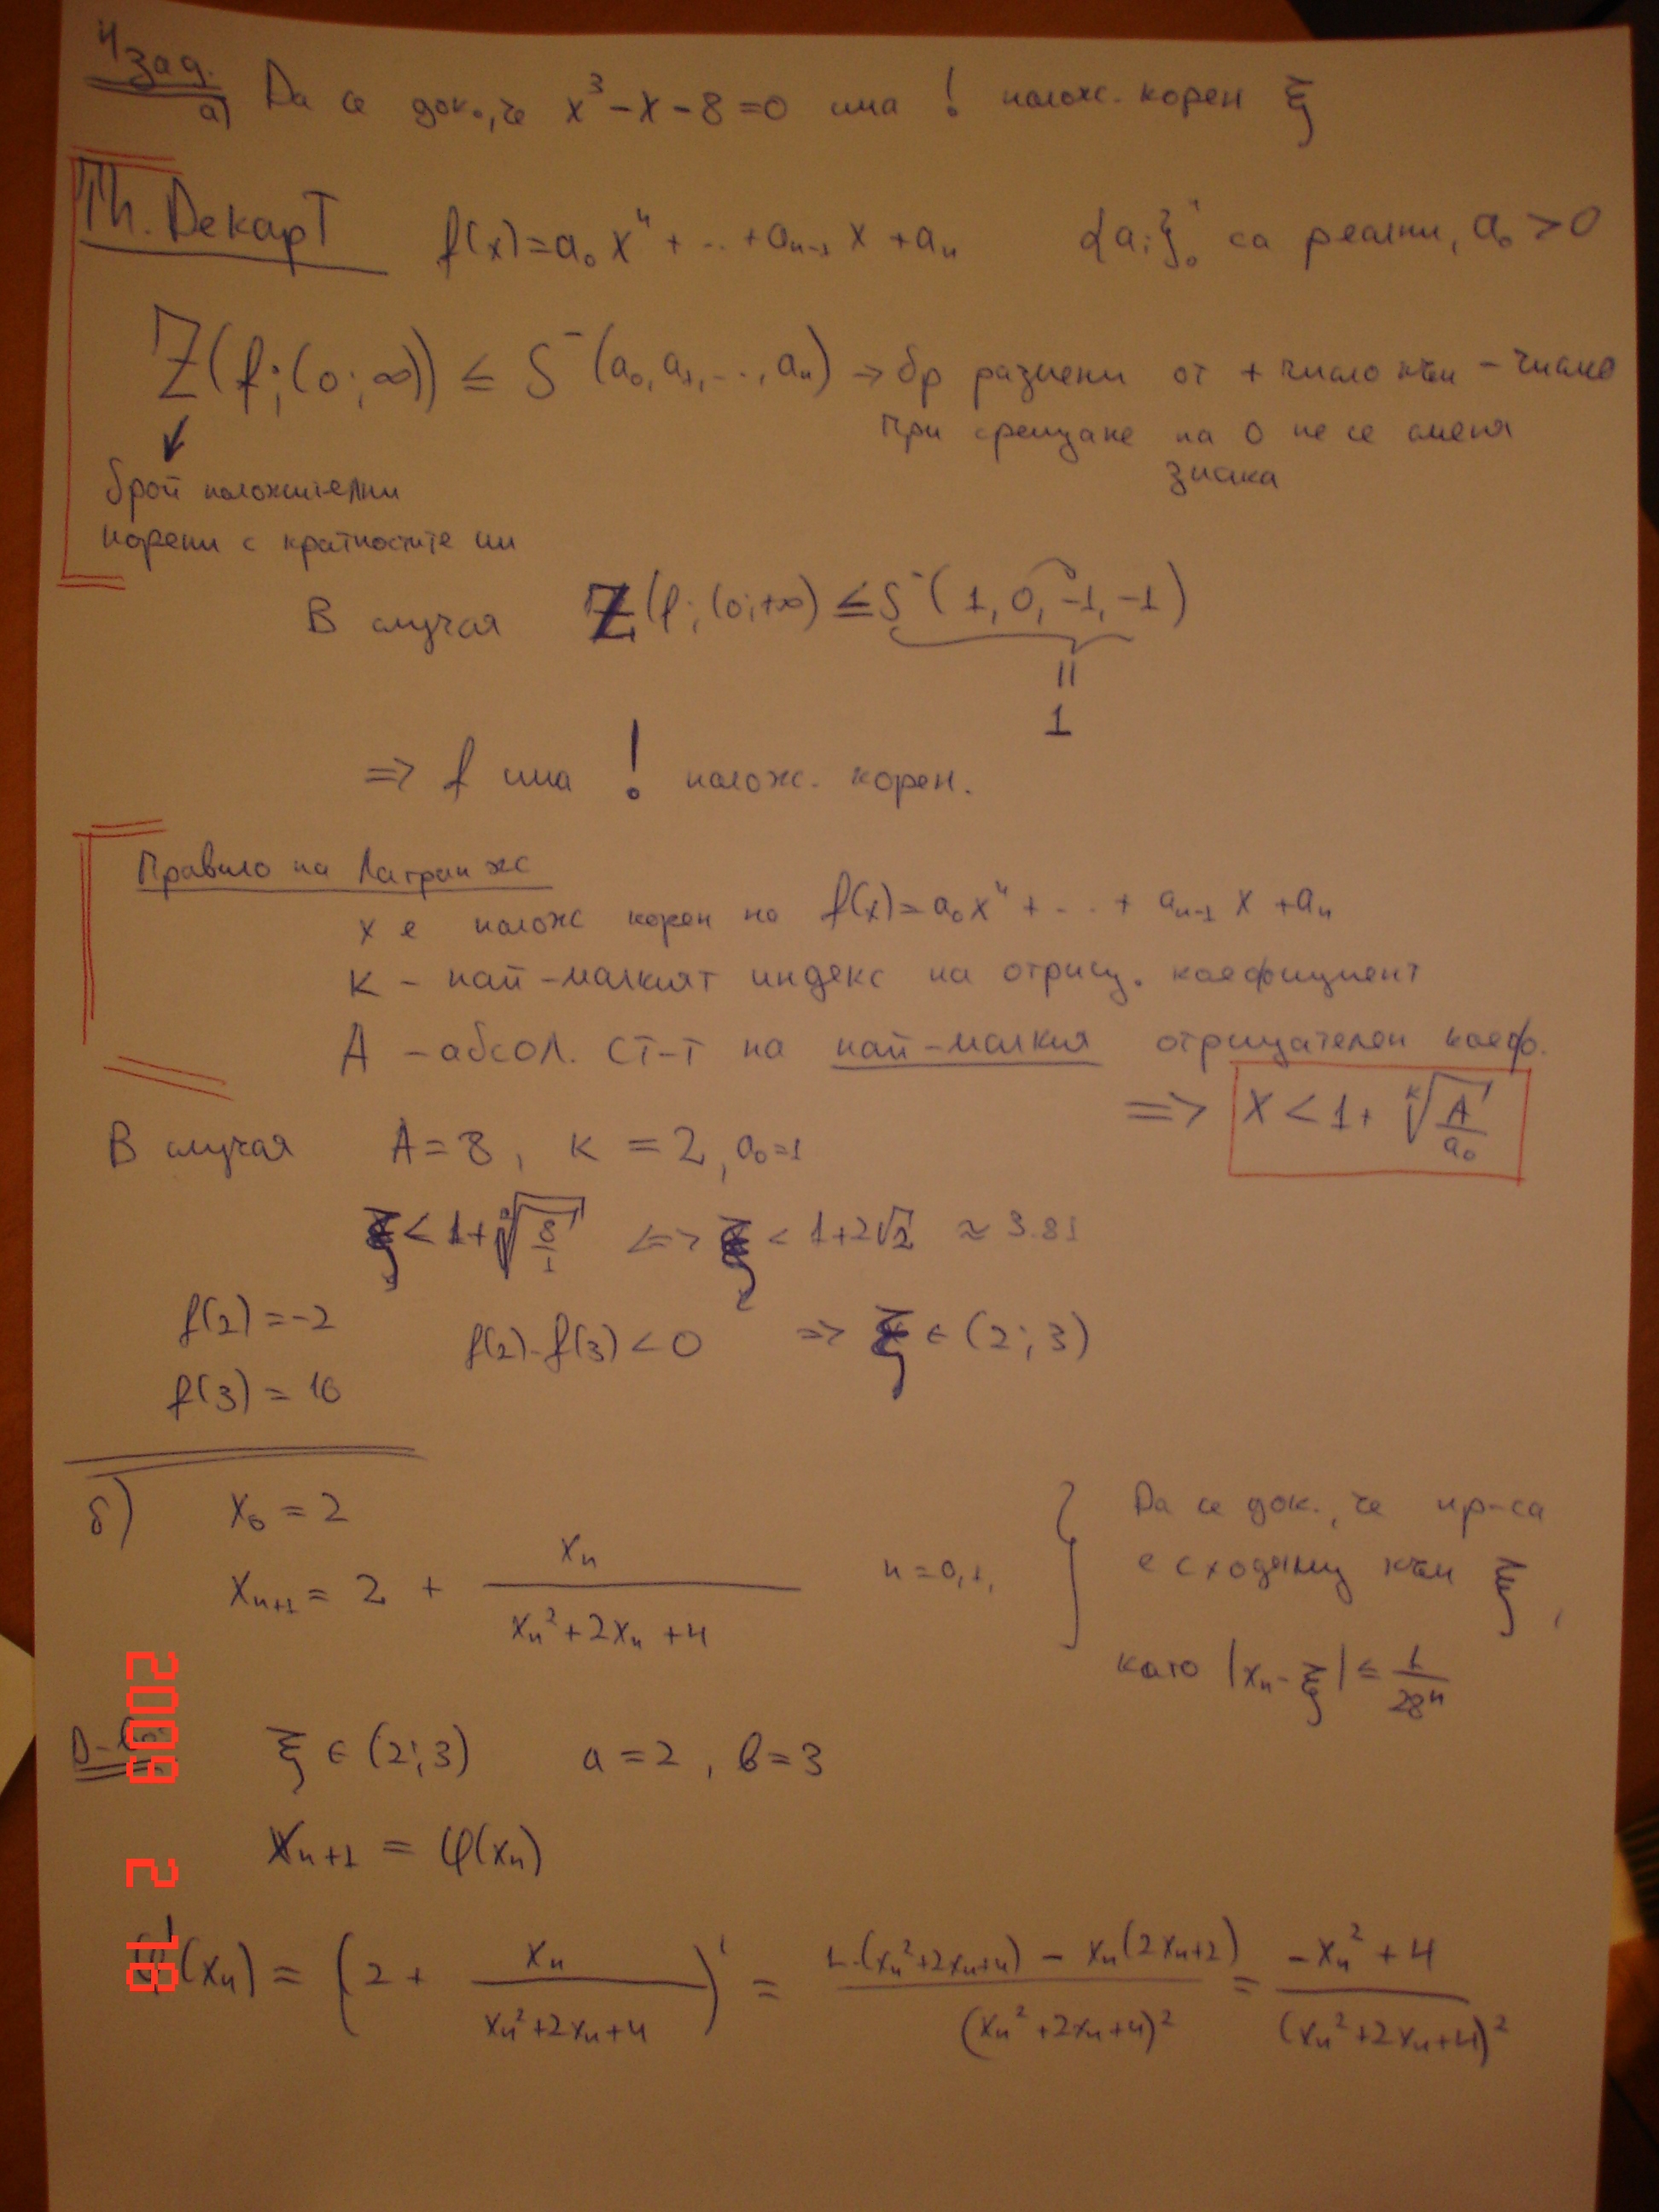 4 зад.
а) Да се док., че x³ - x - 8 = 0 има ! полож. корен ξ
Th. Декарт f(x) = a₀xⁿ + .. + aₙ₋₁ x + aₙ {aᵢ}₀ⁿ са реални, a₀ > 0
Z(f; (0; ∞)) ≤ S⁻(a₀, a₁, ..., aₙ) → бр размени от + число към - число
При срещане на 0 не се сменя
знака
брой положителни
корени с кратностите им
В случая Z(f; (0; +∞) ≤ S⁻(1, 0, -1, -1)
||
1
=> f има ! полож. корен.
Правило на Лагранж
x е полож корен на f(x) = a₀xⁿ + ... + aₙ₋₁ x + aₙ
К - най-малкият индекс на отриц. коефициент
А - абсол. ст-т на най-малкия отрицателен коеф.
=> x < 1 + ᵏ√(A/a₀)
В случая A = 8, к = 2, a₀ = 1
ξ < 1 + ²√(8/1) <=> ξ < 1 + 2√2 ≈ 3.81
f(2) = -2
f(2).f(3) < 0 => ξ ∈ (2; 3)
f(3) = 16
б) x₀ = 2
xₙ₊₁ = 2 + xₙ / (xₙ² + 2xₙ + 4) n = 0,1,
Да се док., че пр-са
е сходящ към ξ,
като |xₙ - ξ| ≤ 1/28ⁿ
Д-во ξ ∈ (2; 3) a = 2, b = 3
xₙ₊₁ = φ(xₙ)
φ'(xₙ) = (2 + xₙ / (xₙ² + 2xₙ + 4))' = (1.(xₙ² + 2xₙ + 4) - xₙ(2xₙ + 2)) / (xₙ² + 2xₙ + 4)² = (-xₙ² + 4) / (xₙ² + 2xₙ + 4)²
2009 2 18